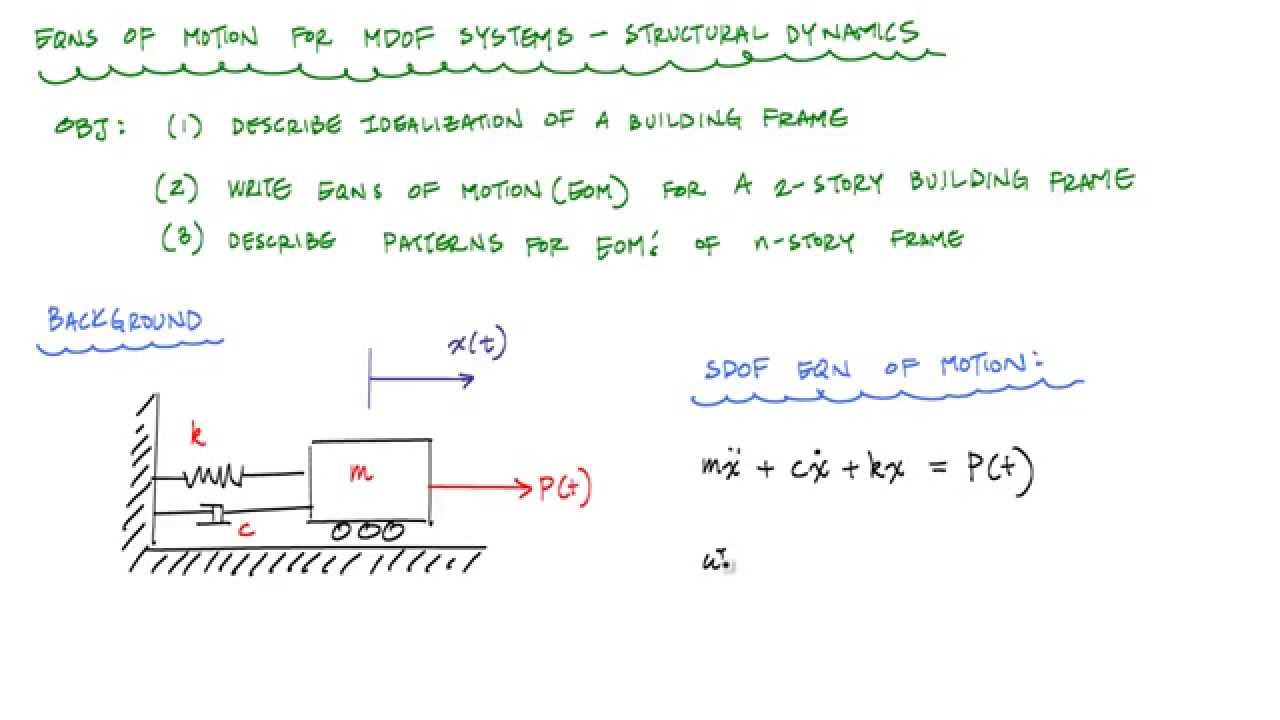 EQNS OF MOTION FOR MDOF SYSTEMS - STRUCTURAL DYNAMICS
OBJ: (1) DESCRIBE IDEALIZATION OF A BUILDING FRAME
(2) WRITE EQNS OF MOTION (EOM) FOR A 2-STORY BUILDING FRAME
(3) DESCRIBE PATTERNS FOR EOM's OF n-STORY FRAME
BACKGROUND
x(t)
k
m
P(t)
c
SDOF EQN OF MOTION:
mẍ + cẋ + kx = P(t)